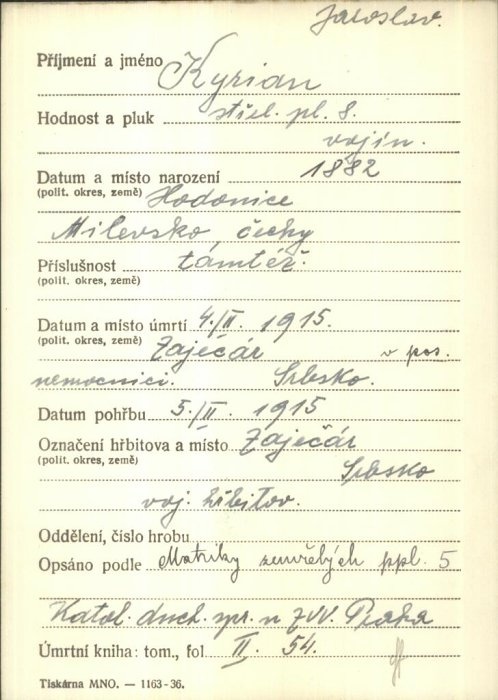 Jaroslav.
Příjmení a jméno Kyrian
Hodnost a pluk střel. pl. 8.
vojín.
Datum a místo narození 1882
(polit. okres, země) Hodonice
Milevsko čechy
Příslušnost tamtéž.
(polit. okres, země)
Datum a místo úmrtí 4./II. 1915.
(polit. okres, země) Zaječar v pos.
nemocnici. Srbsko.
Datum pohřbu 5./II. 1915
Označení hřbitova a místo Zaječar
(polit. okres, země) Srbsko
voj. hřbitov.
Oddělení, číslo hrobu
Opsáno podle Matriky zemřelých ppl. 5
Katol. duch. spr. u ZVV. Praha
Úmrtní kniha: tom., fol II. 54.
Tiskárna MNO. — 1163-36.